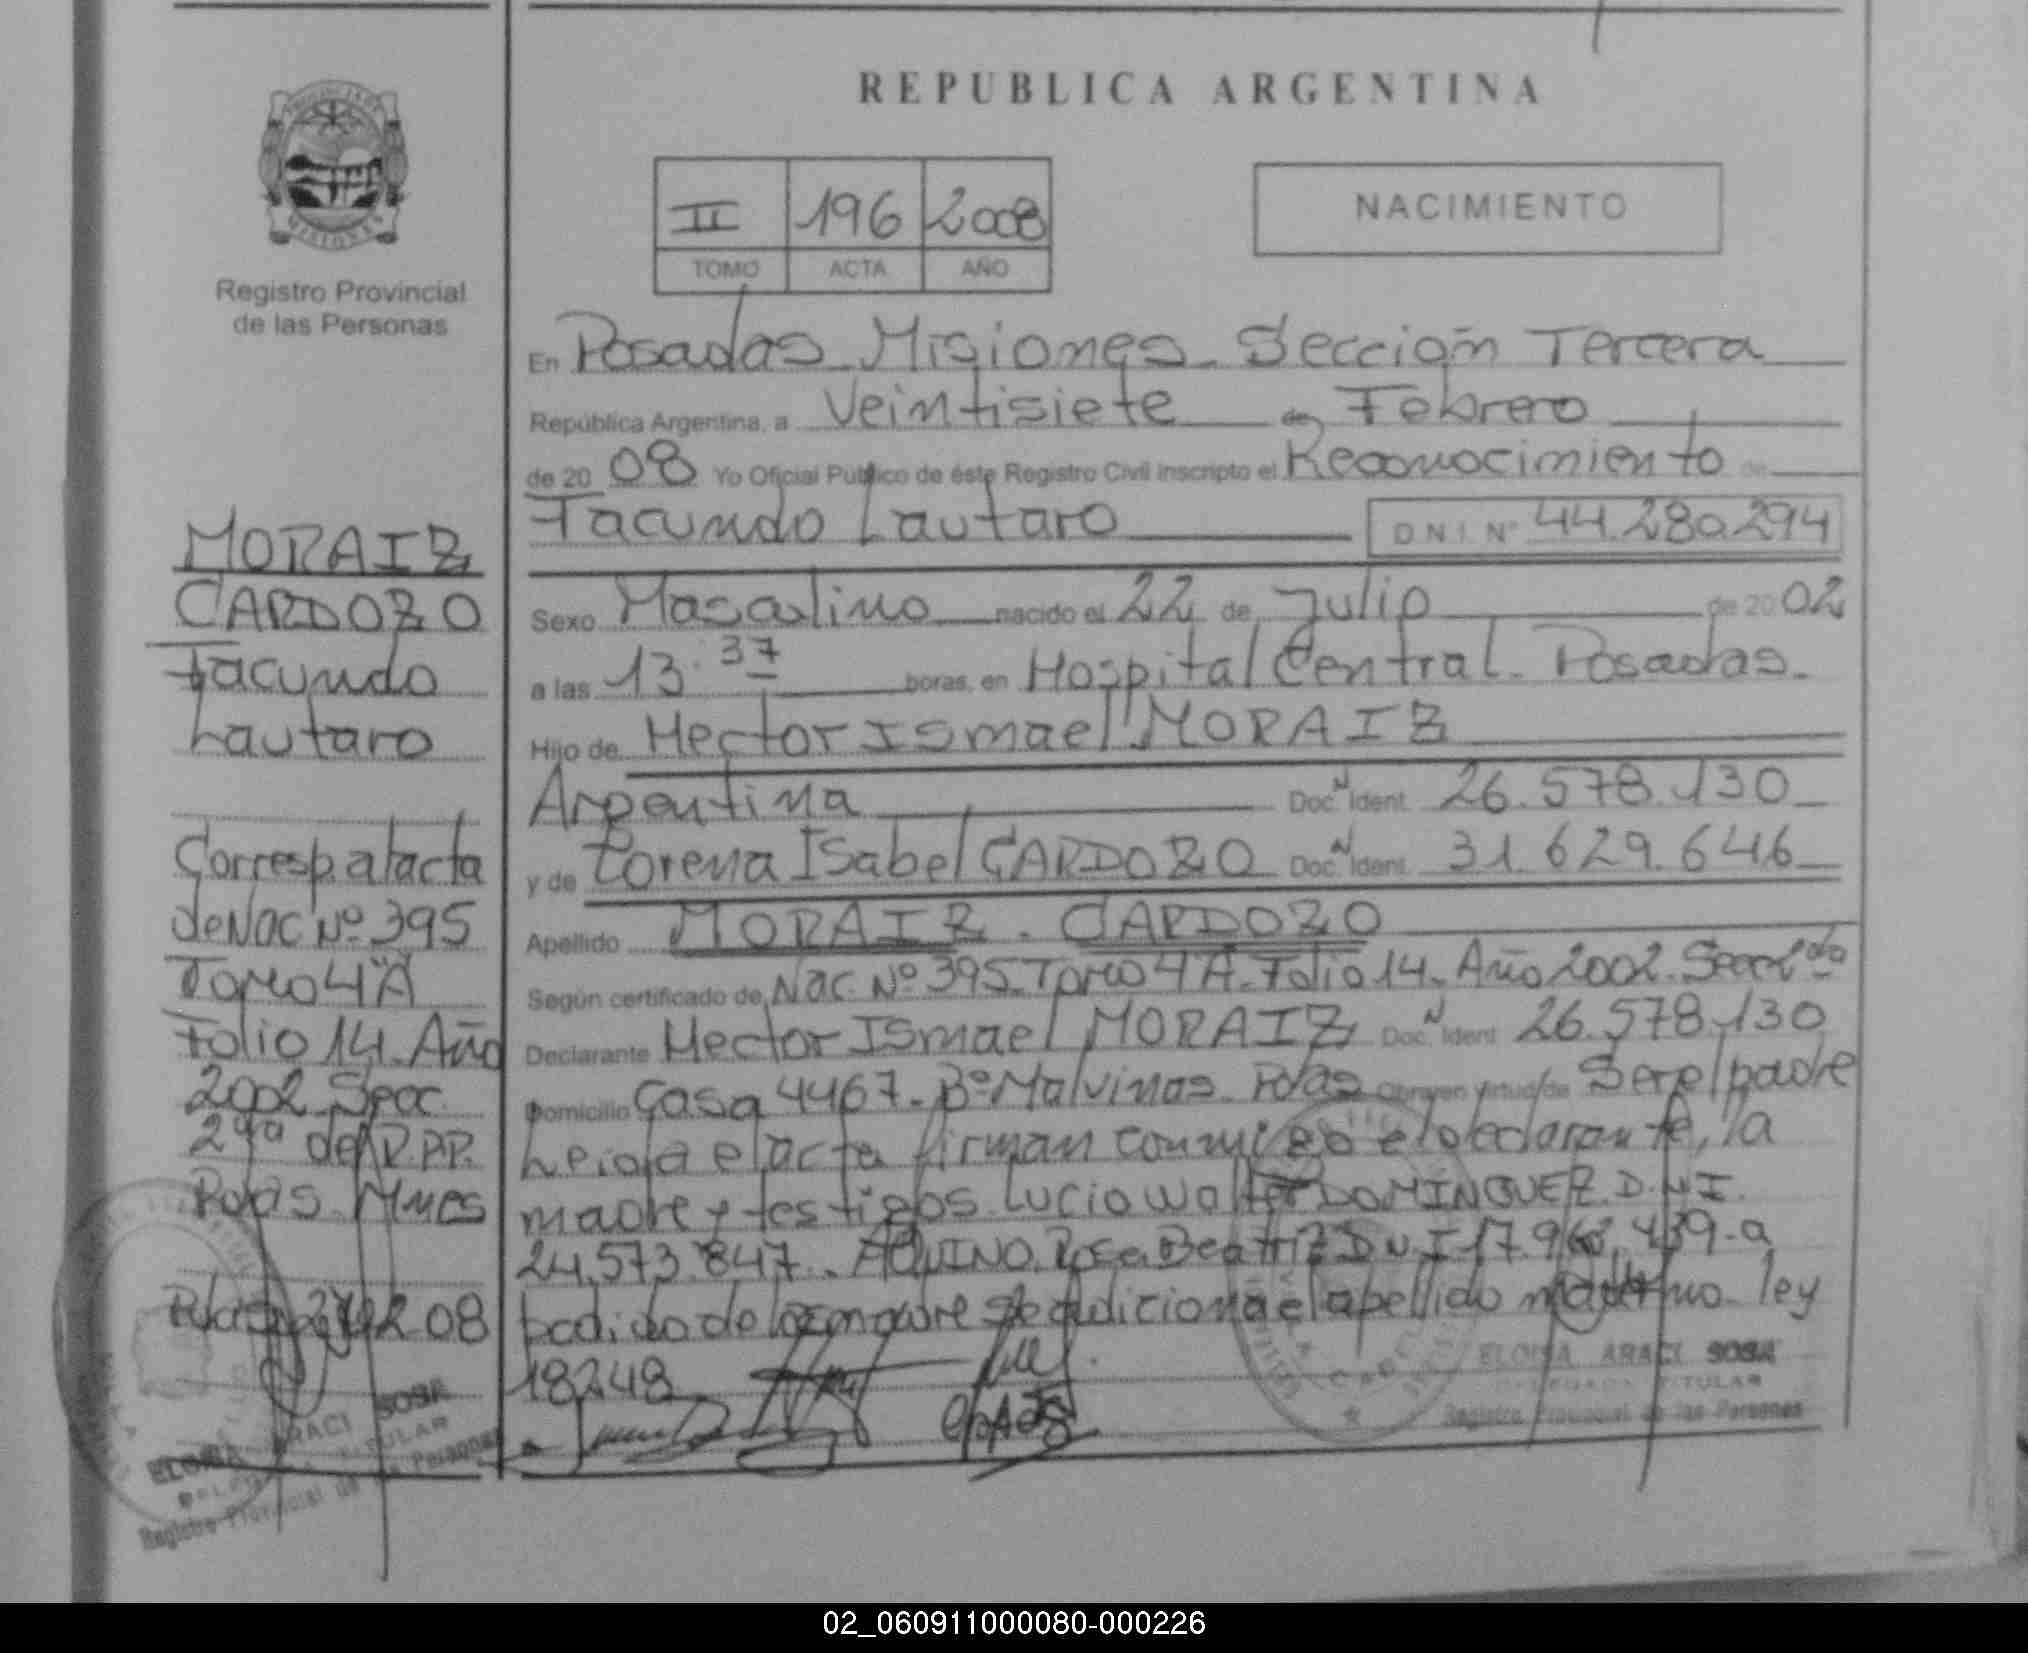 REPUBLICA ARGENTINA
II 196 2008
TOMO ACTA AÑO
NACIMIENTO
Registro Provincial
de las Personas
MORAIZ
CARDOZO
Facundo
Lautaro
Corresp. al acta
de Nac Nº 395
Tomo 4"A
Folio 14. Año
2002. Secc.
2da del R.P.P.
Pdas. Mnes
En Posadas Misiones. Sección Tercera
República Argentina, a Veintisiete de Febrero
de 2008 Yo Oficial Público de éste Registro Civil inscripto el Reconocimiento de
Facundo Lautaro D N I. Nº 44.280.294
Sexo Masculino nacido el 22 de Julio de 2002
a las 13:37 horas, en Hospital Central. Posadas.
Hijo de Hector Ismael MORAIZ
Argentina Doc. N Ident. 26.578.130
y de Lorena Isabel CARDOZO Doc. N Ident. 31.629.646
Apellido MORAIZ. CARDOZO
Según certificado de Nac. Nº 395. Tomo 4"A. Folio 14. Año 2002. Secc 2da
Declarante Hector Ismael MORAIZ Doc. N Ident 26.578.130
Domicilio Casa 4467. Bº Malvinas. Pdas Obra en virtud de Ser el padre
Leida el acta firman conmigo el declarante, la
madre y testigos. Lucio Walter DOMÍNGUEZ. D.N.I.
24.573.847. AQUINO, Rosa Beatriz D.N.I 17.96 439. a
pedido de la madre se adiciona el apellido materno. ley
18248
ELOISA ARACI SOSA
DELEGADA TITULAR
Registro Provincial de las Personas
ELOISA ARACI SOSA
DELEGADA TITULAR
Registro Provincial de las Personas
02_060911000080-000226